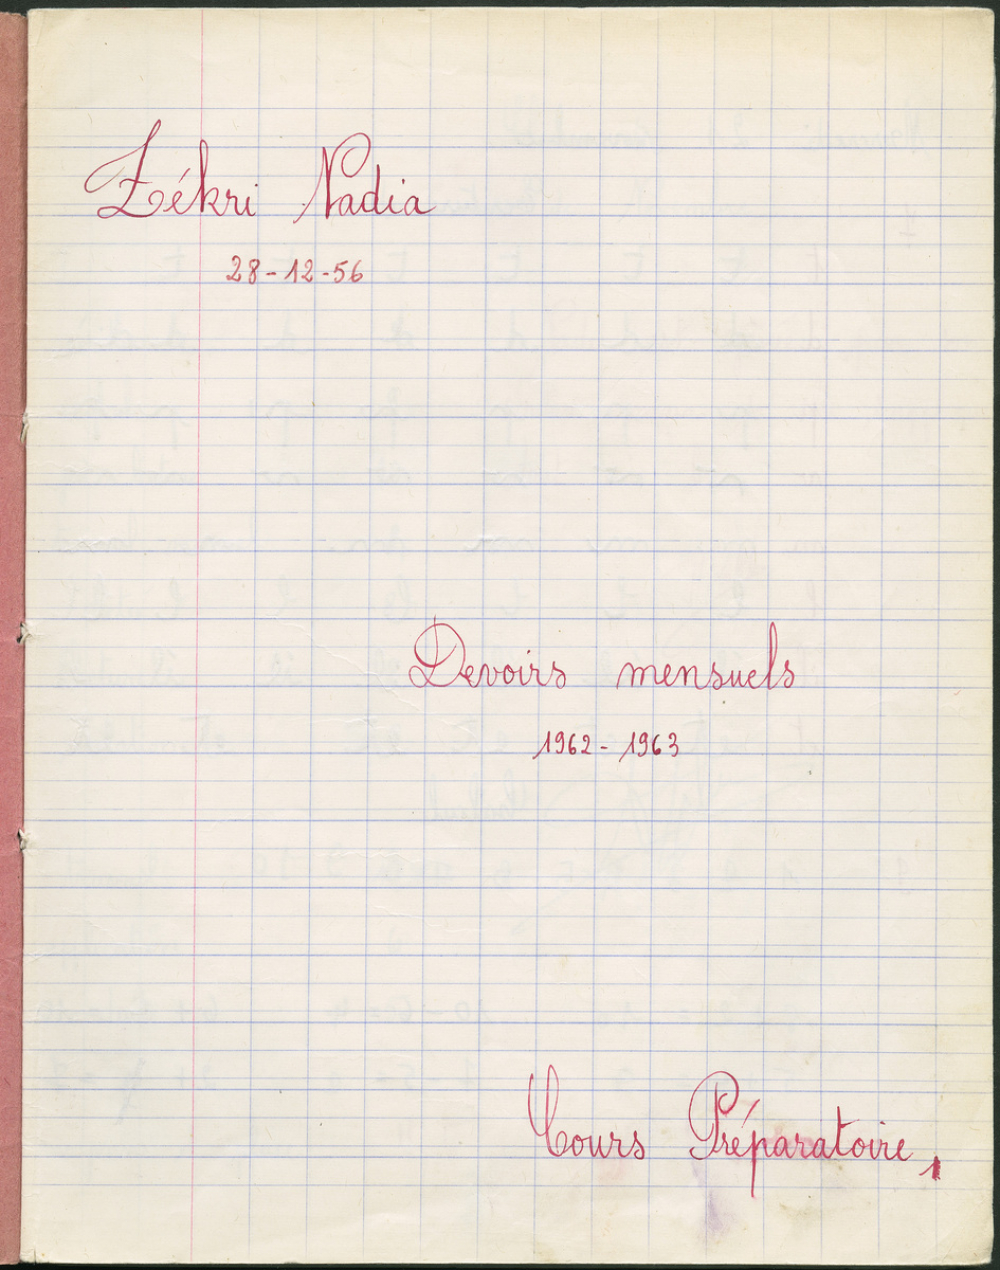 Zékri Nadia
28-12-56
Devoirs mensuels
1962-1963
Cours Préparatoire 1